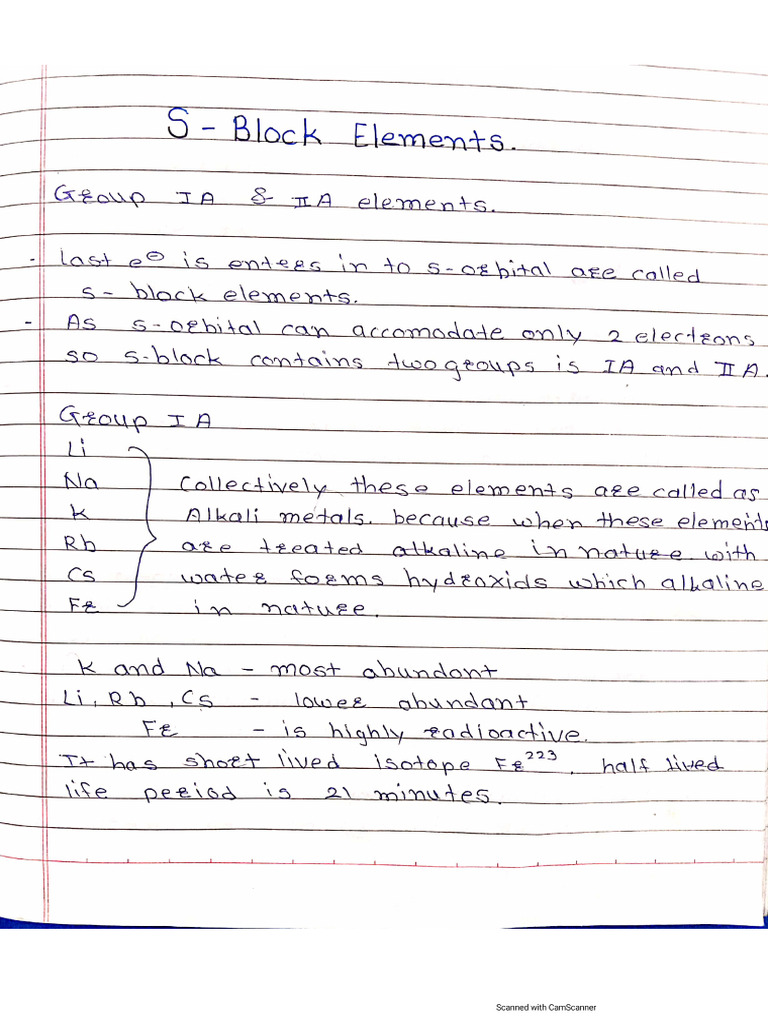 S - Block Elements.
Group IA & IIA elements.
- last e⊖ is enters in to s-orbital are called
s - block elements.
- As s-orbital can accomodate only 2 electrons
so s-block contains two groups is IA and IIA.
Group IA
Li
Na Collectively these elements are called as
K Alkali metals. because when these elements
Rb are treated alkaline in nature with
Cs water forms hydroxids which alkaline
Fr in nature.
K and Na - most abundant
Li, Rb, Cs - lower abundant
Fr - is highly radioactive.
It has short lived isotope Fr²²³. half lived
life period is 21 minutes.
Scanned with CamScanner